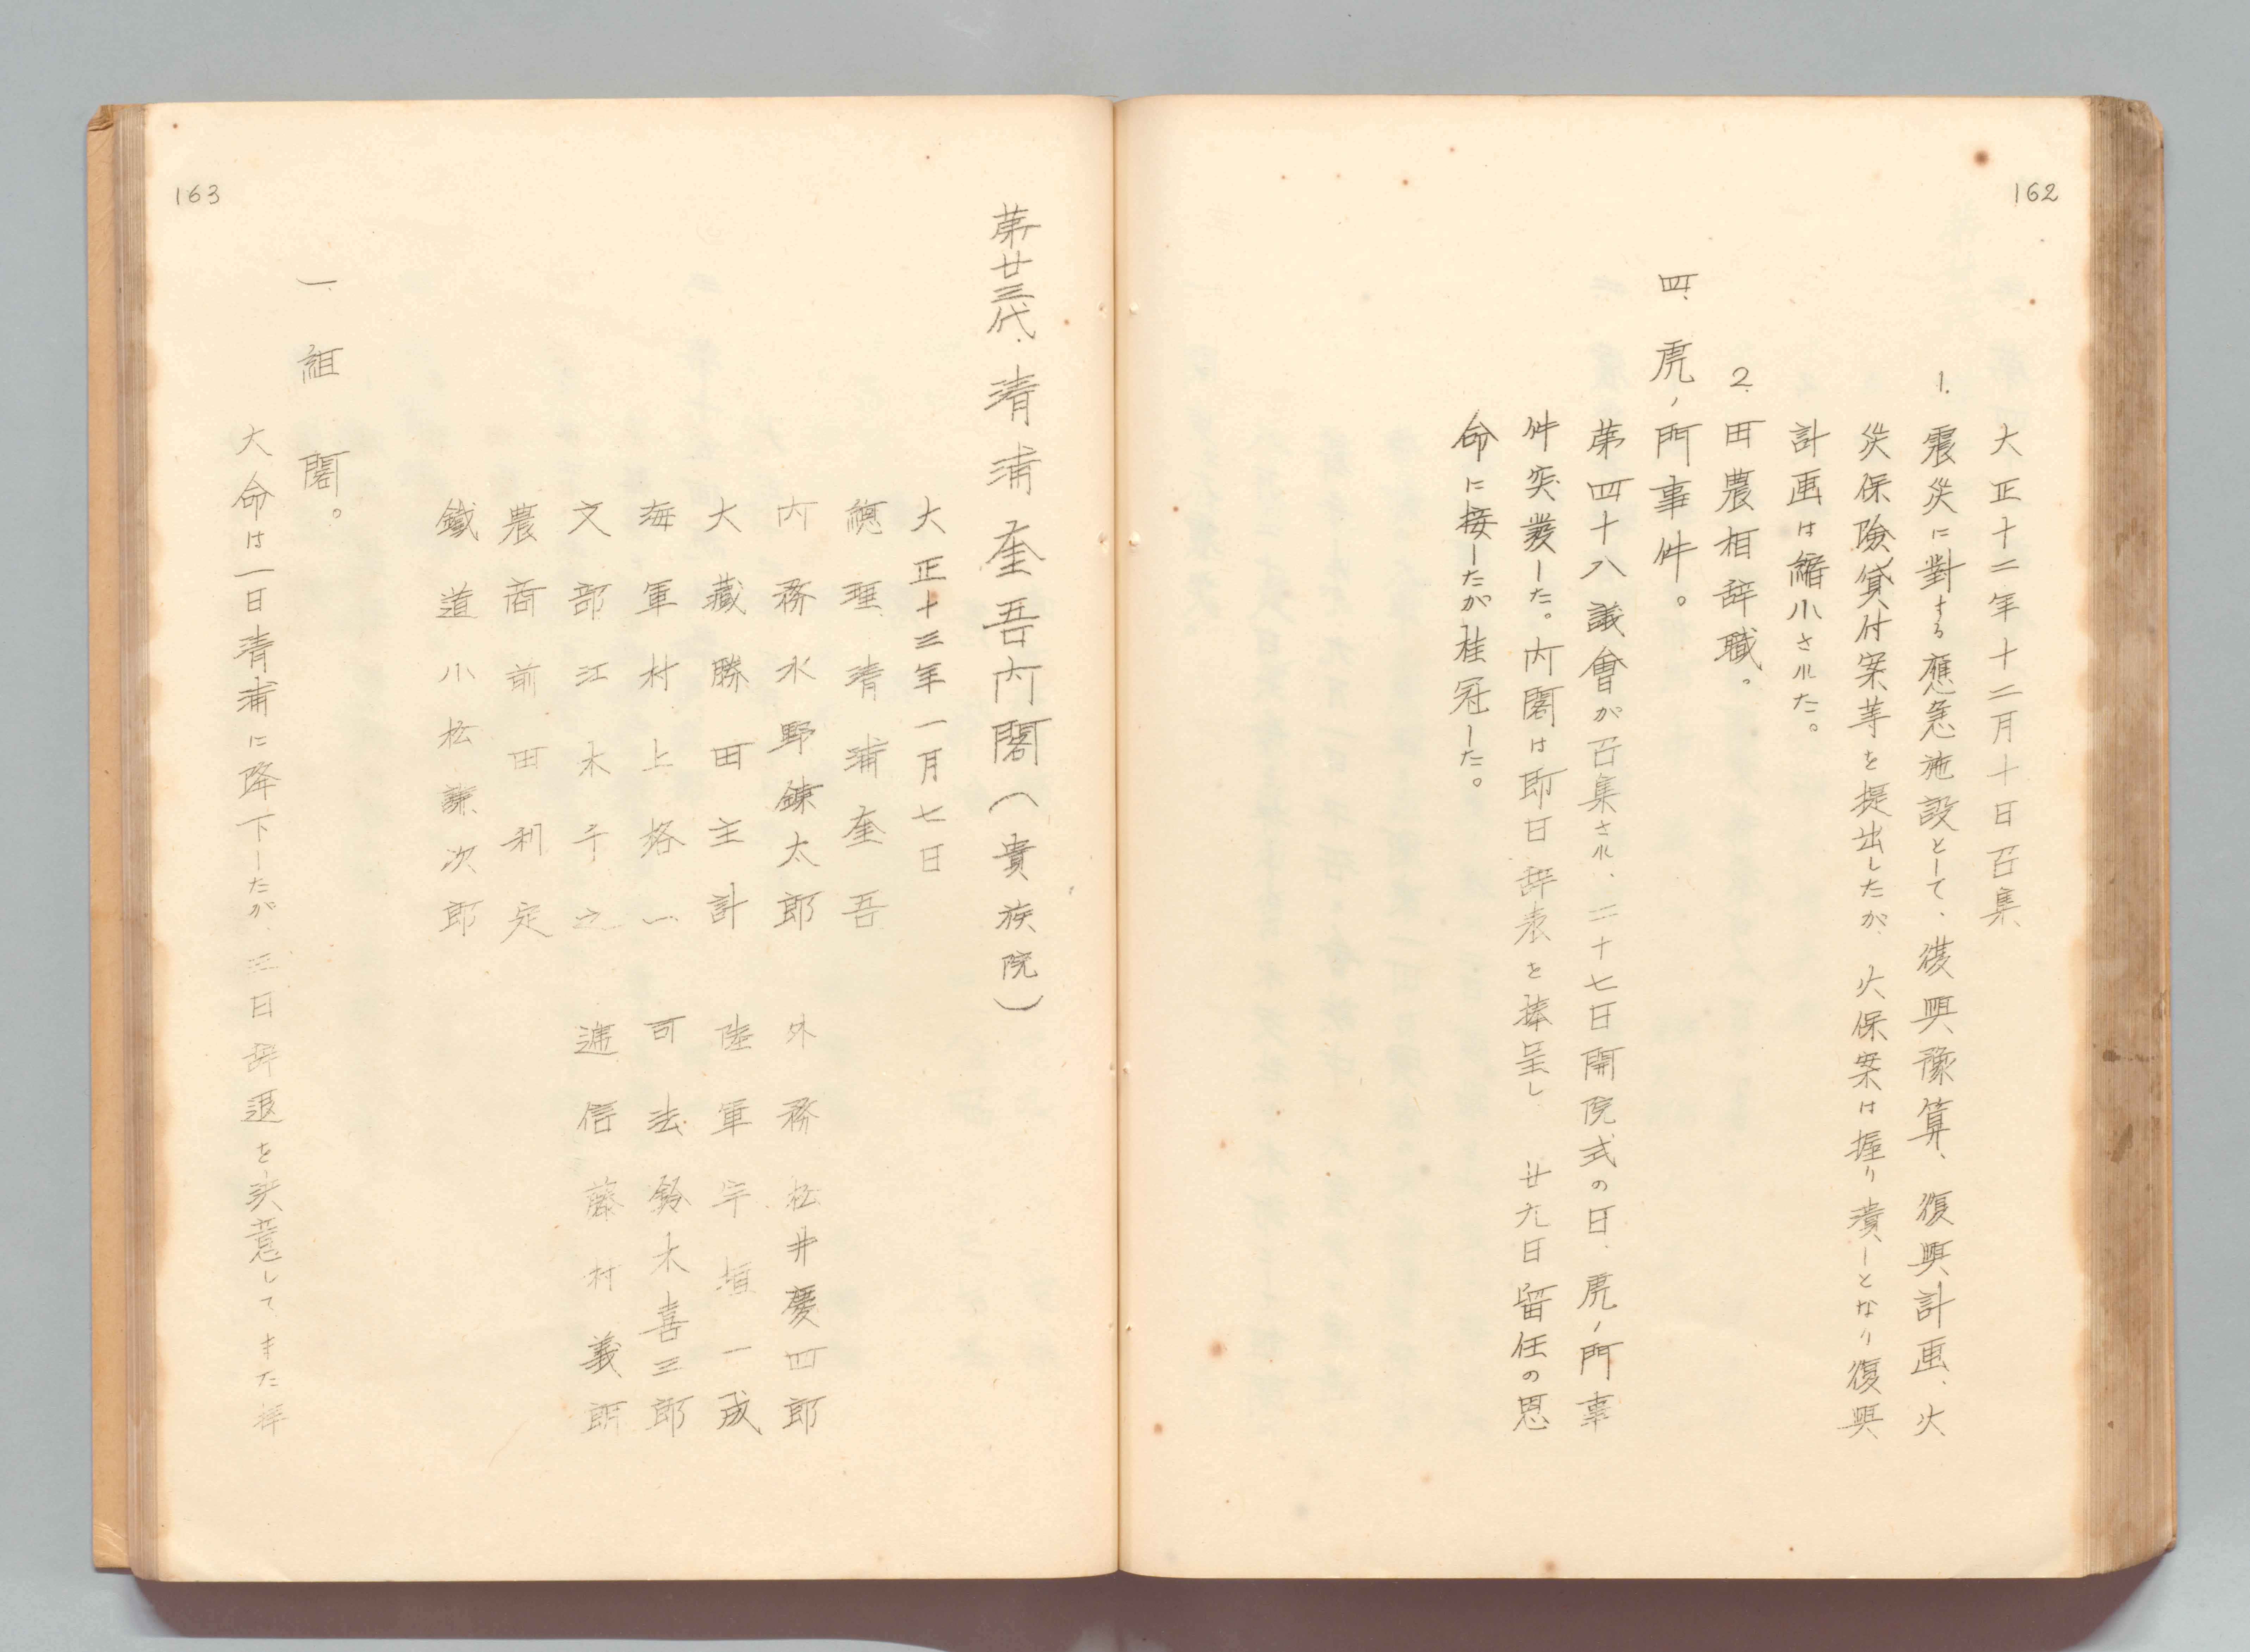 162
大正十二年十二月十日召集
1. 震災に對する應急施設として、復興豫算、復興計画、火
災保險貸付案等を提出したが、火保案は握り潰しとなり復興
計画は縮小された。
2. 田農相辞職。
四、虎ノ門事件。
第四十八議會が召集され、二十七日開院式の日、虎ノ門事
件突發した。内閣は即日辞表を捧呈し 廿九日留任の恩
命に接したが桂冠した。
163
第廿三代、清浦奎吾内閣(貴族院)
大正十三年一月七日
總理 清浦奎吾
内務 水野錬太郎 外務 松井慶四郎
大藏 勝田主計 陸軍 宇垣一成
海軍 村上格一 司法 鈴木喜三郎
文部 江木千之 逓信 藤村義朗
農商 前田利定
鐵道 小松謙次郎
一、組閣。
大命は一日清浦に降下したが、三日辞退を決意して、また拝